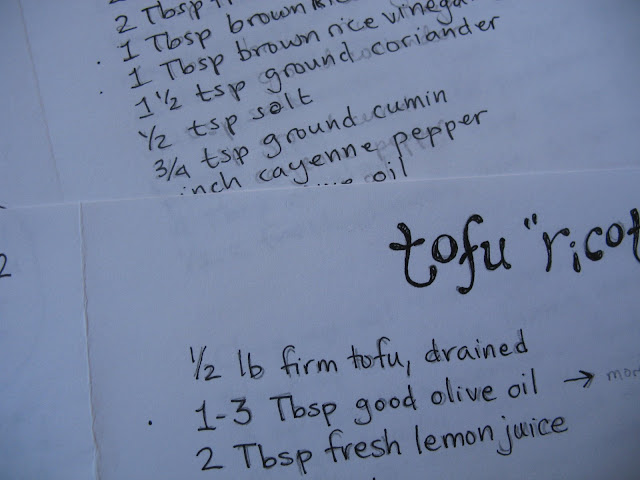 2 Tbsp
1 Tbsp brown
1 Tbsp brown rice vinegar
1 1/2 tsp ground coriander
1/2 tsp salt
3/4 tsp ground cumin
inch cayenne pepper
oil
2
tofu "ricot
1/2 lb firm tofu, drained
1-3 Tbsp good olive oil → mor
2 Tbsp fresh lemon juice